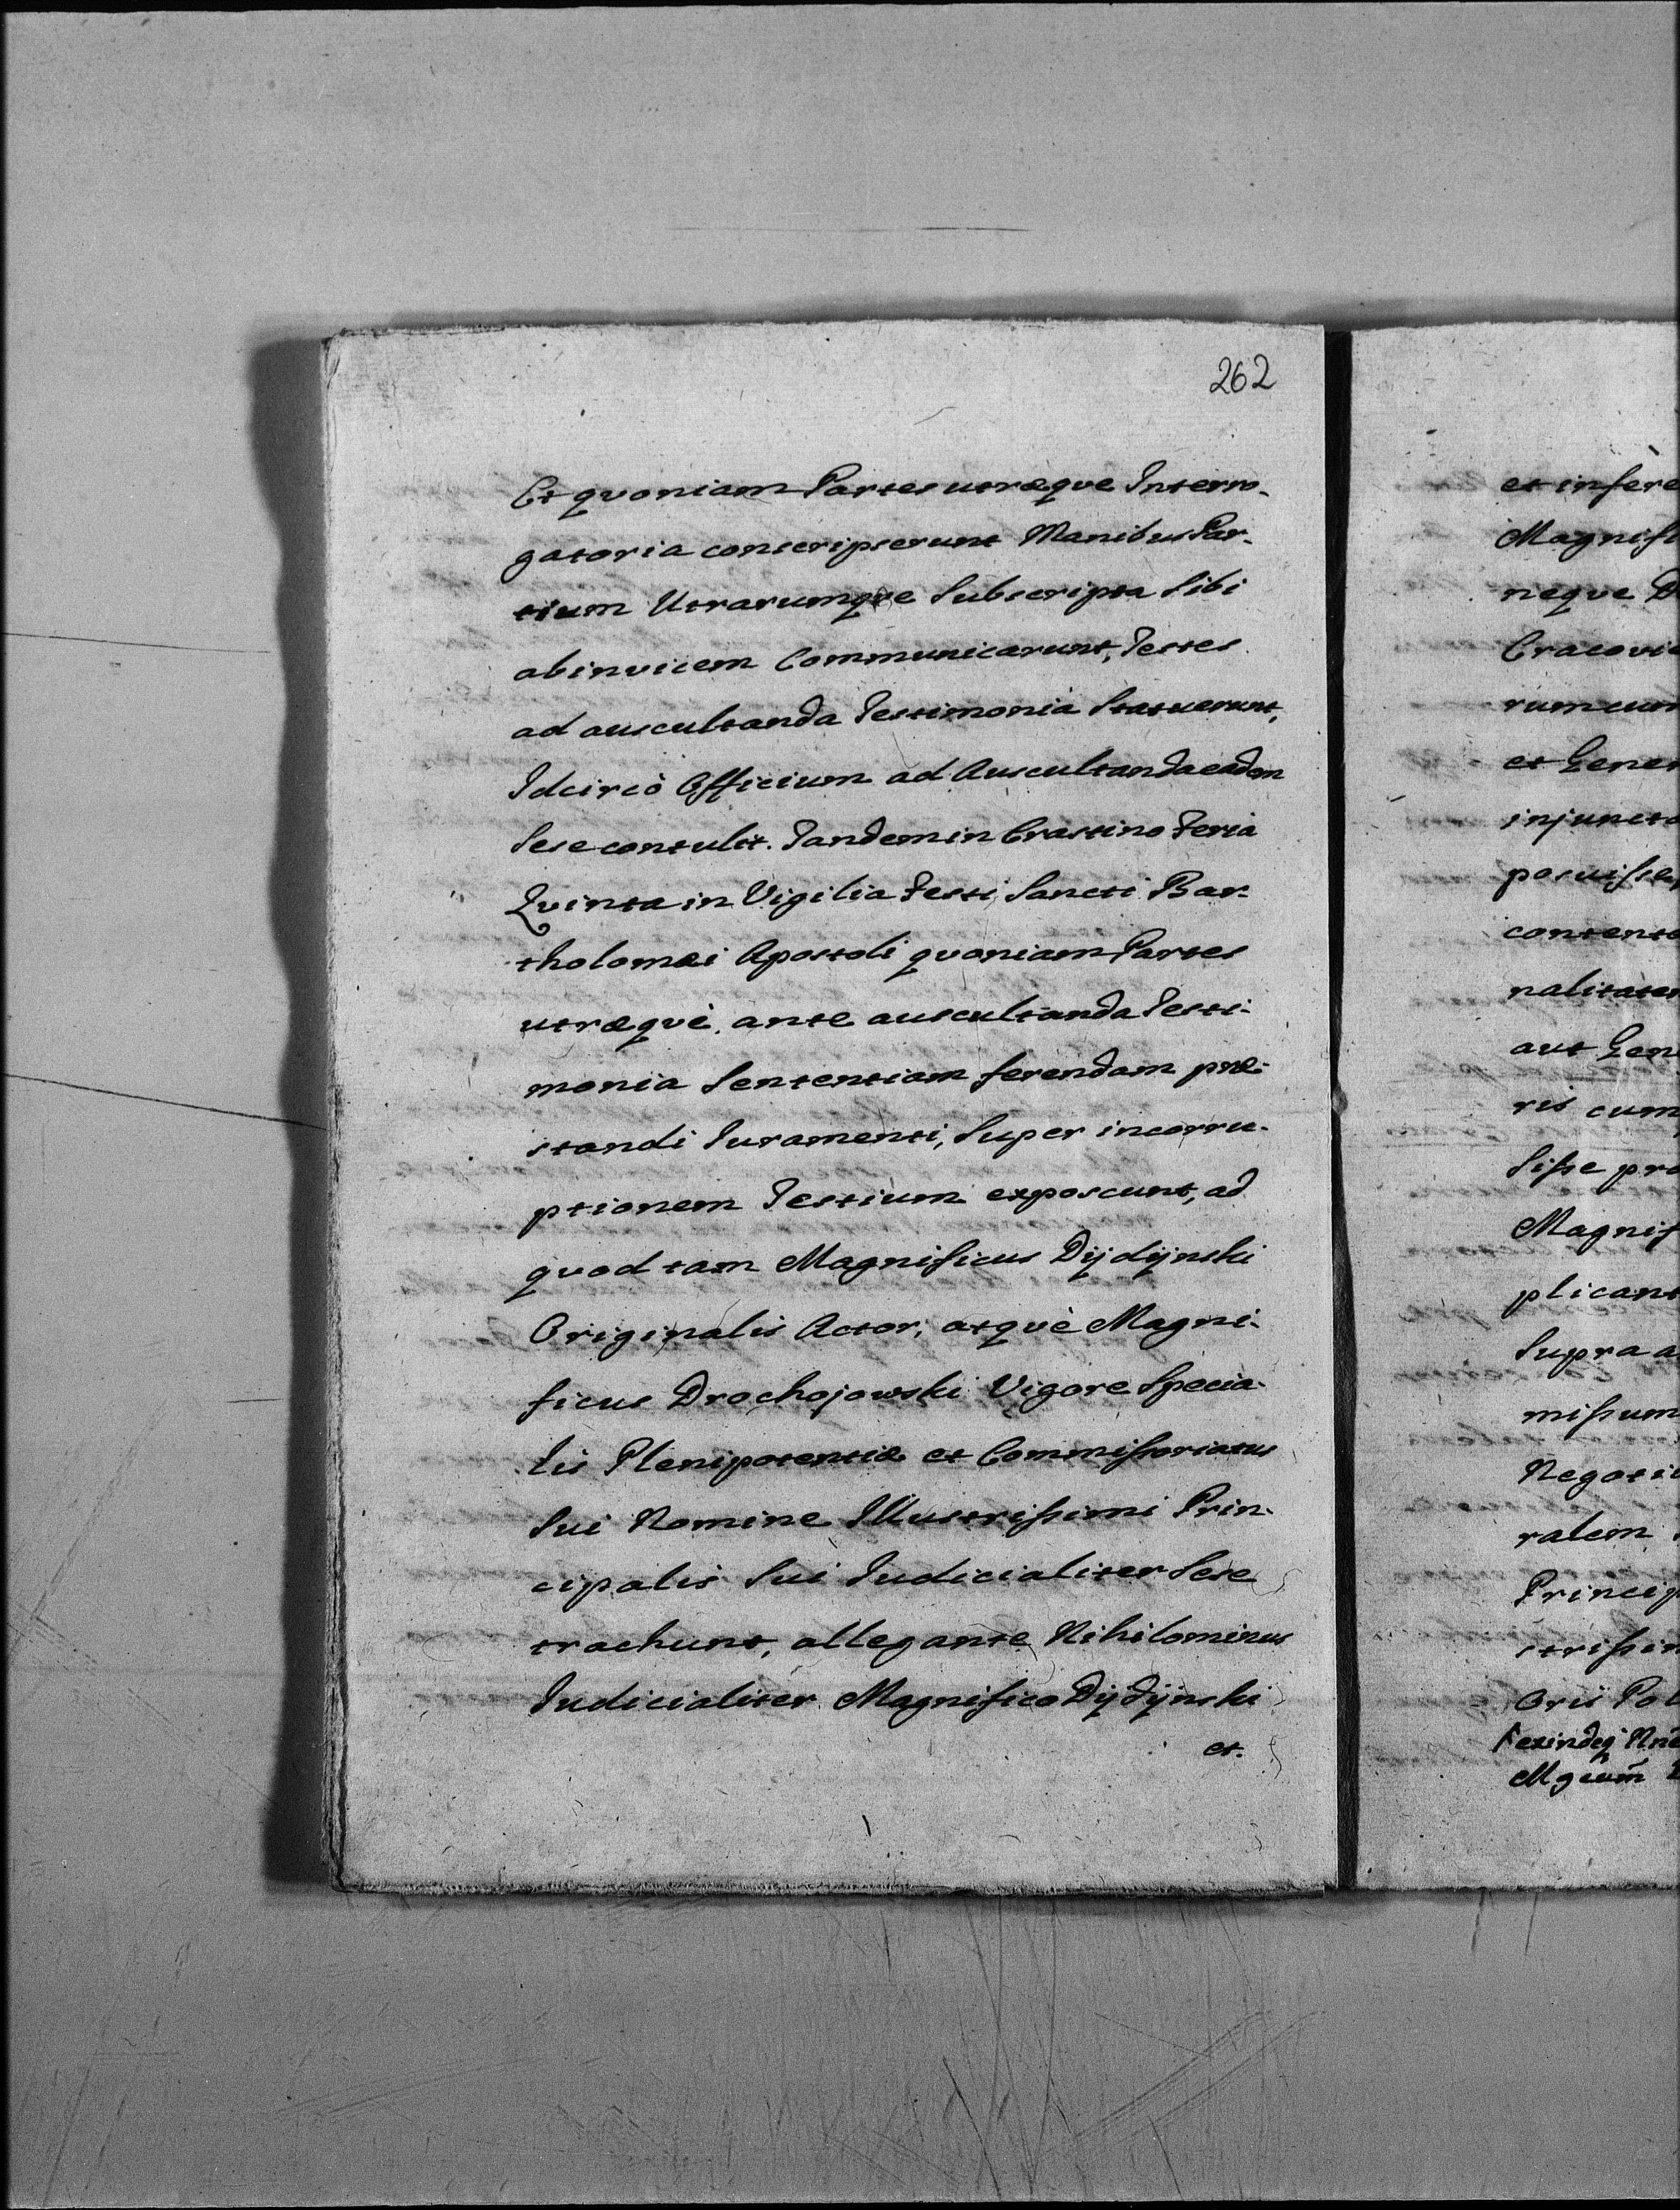 262
Et quoniam Partes utræque Interro-
gatoria conscripserunt Manibus Par-
tium Utrarumque Subscripta Sibi
abinvicem Communicarunt, Testes
ad auscultanda Testimonia Statuerunt,
Idcircò Officium ad Auscultanda eadem
Sese contulit. Tandem in Crastino Feria
Quinta in Vigilia Festi Sancti Bar-
tholomæi Apostoli quoniam Partes
utræquè ante auscultanda Testi-
monia Sententiam ferendam præ-
standi Iuramenti, Super incorru-
ptionem Testium exposcunt, ad
quod tam Magnificus Dydynski
Originalis Actor, atquè Magni-
ficus Drochojowski Vigore Specia-
lis Plenipotentiæ et Commissoriatus
Sui Nomine Illustrissimi Prin-
cipalis Sui Iudicialiter Sese
trachunt, allegante Nihilominus
Iudicialiter Magnifico Dydynski
et.
et infere
Magnifi
neque D
Cracovi
rum cum
et Gener
injuncto
posuisse,
contento
nalitatem
aut Gen
ris cum
Sisse pro
Magnif
plicant
Supra a
missum
Negoti
ralem
Princip
strissim
Oris Pol